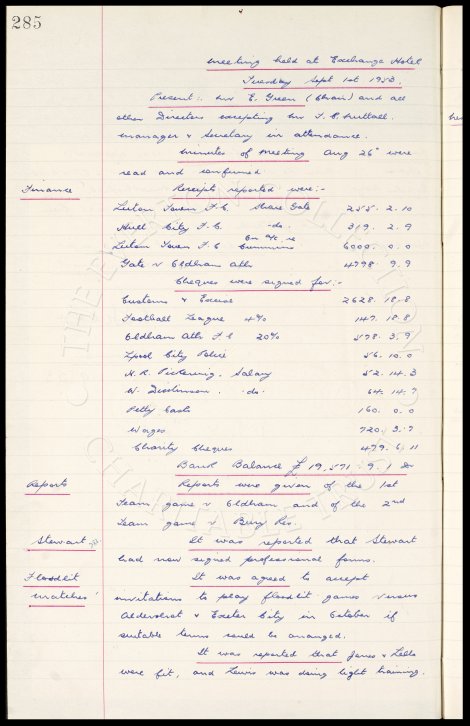 285
Meeting held at Exchange Hotel
Tuesday Sept 1st 1953.
Present:- Mr E. Green (Chair) and all
other Directors excepting Mr J. C.
Manager & Secretary in attendance.
Minutes of Meeting Aug 26th were
read and confirmed
Finance Receipts reported were:-
Luton Town F.C. Share Gate 255. 2. 10
Hull City F.C. -do- 319. 2. 9
Luton Town F.C. on a/c re Cummins 6000. 0. 0
Gate v Oldham Ath 4798. 9. 9
Cheques were signed for:-
Customs & Excise 2628. 18. 8
Football League 4% 147. 18. 8
Oldham Ath F.C 20% 578. 3. 9
Lpool City Police 56. 10. 0
H. R. Pickering. Salary 52. 14. 3
W. Dickinson. -do- 64. 14. 7
Petty Cash 160. 0. 0
Wages 720. 3. 7
Charity Cheques 479. 6. 11
Bank Balance £19,571. 9. 1
Reports Reports were given of the 1st
Team game v Oldham and of the 2nd
Team game v Bury Res.
Stewart It was reported that Stewart
had now signed professional forms.
Floodlit It was agreed to accept
Matches invitations to play floodlit games versus
Aldershot & Exeter City in October if
suitable terms could be arranged.
It was reported that Jones & Lello
were fit, and Lewis was doing light training.